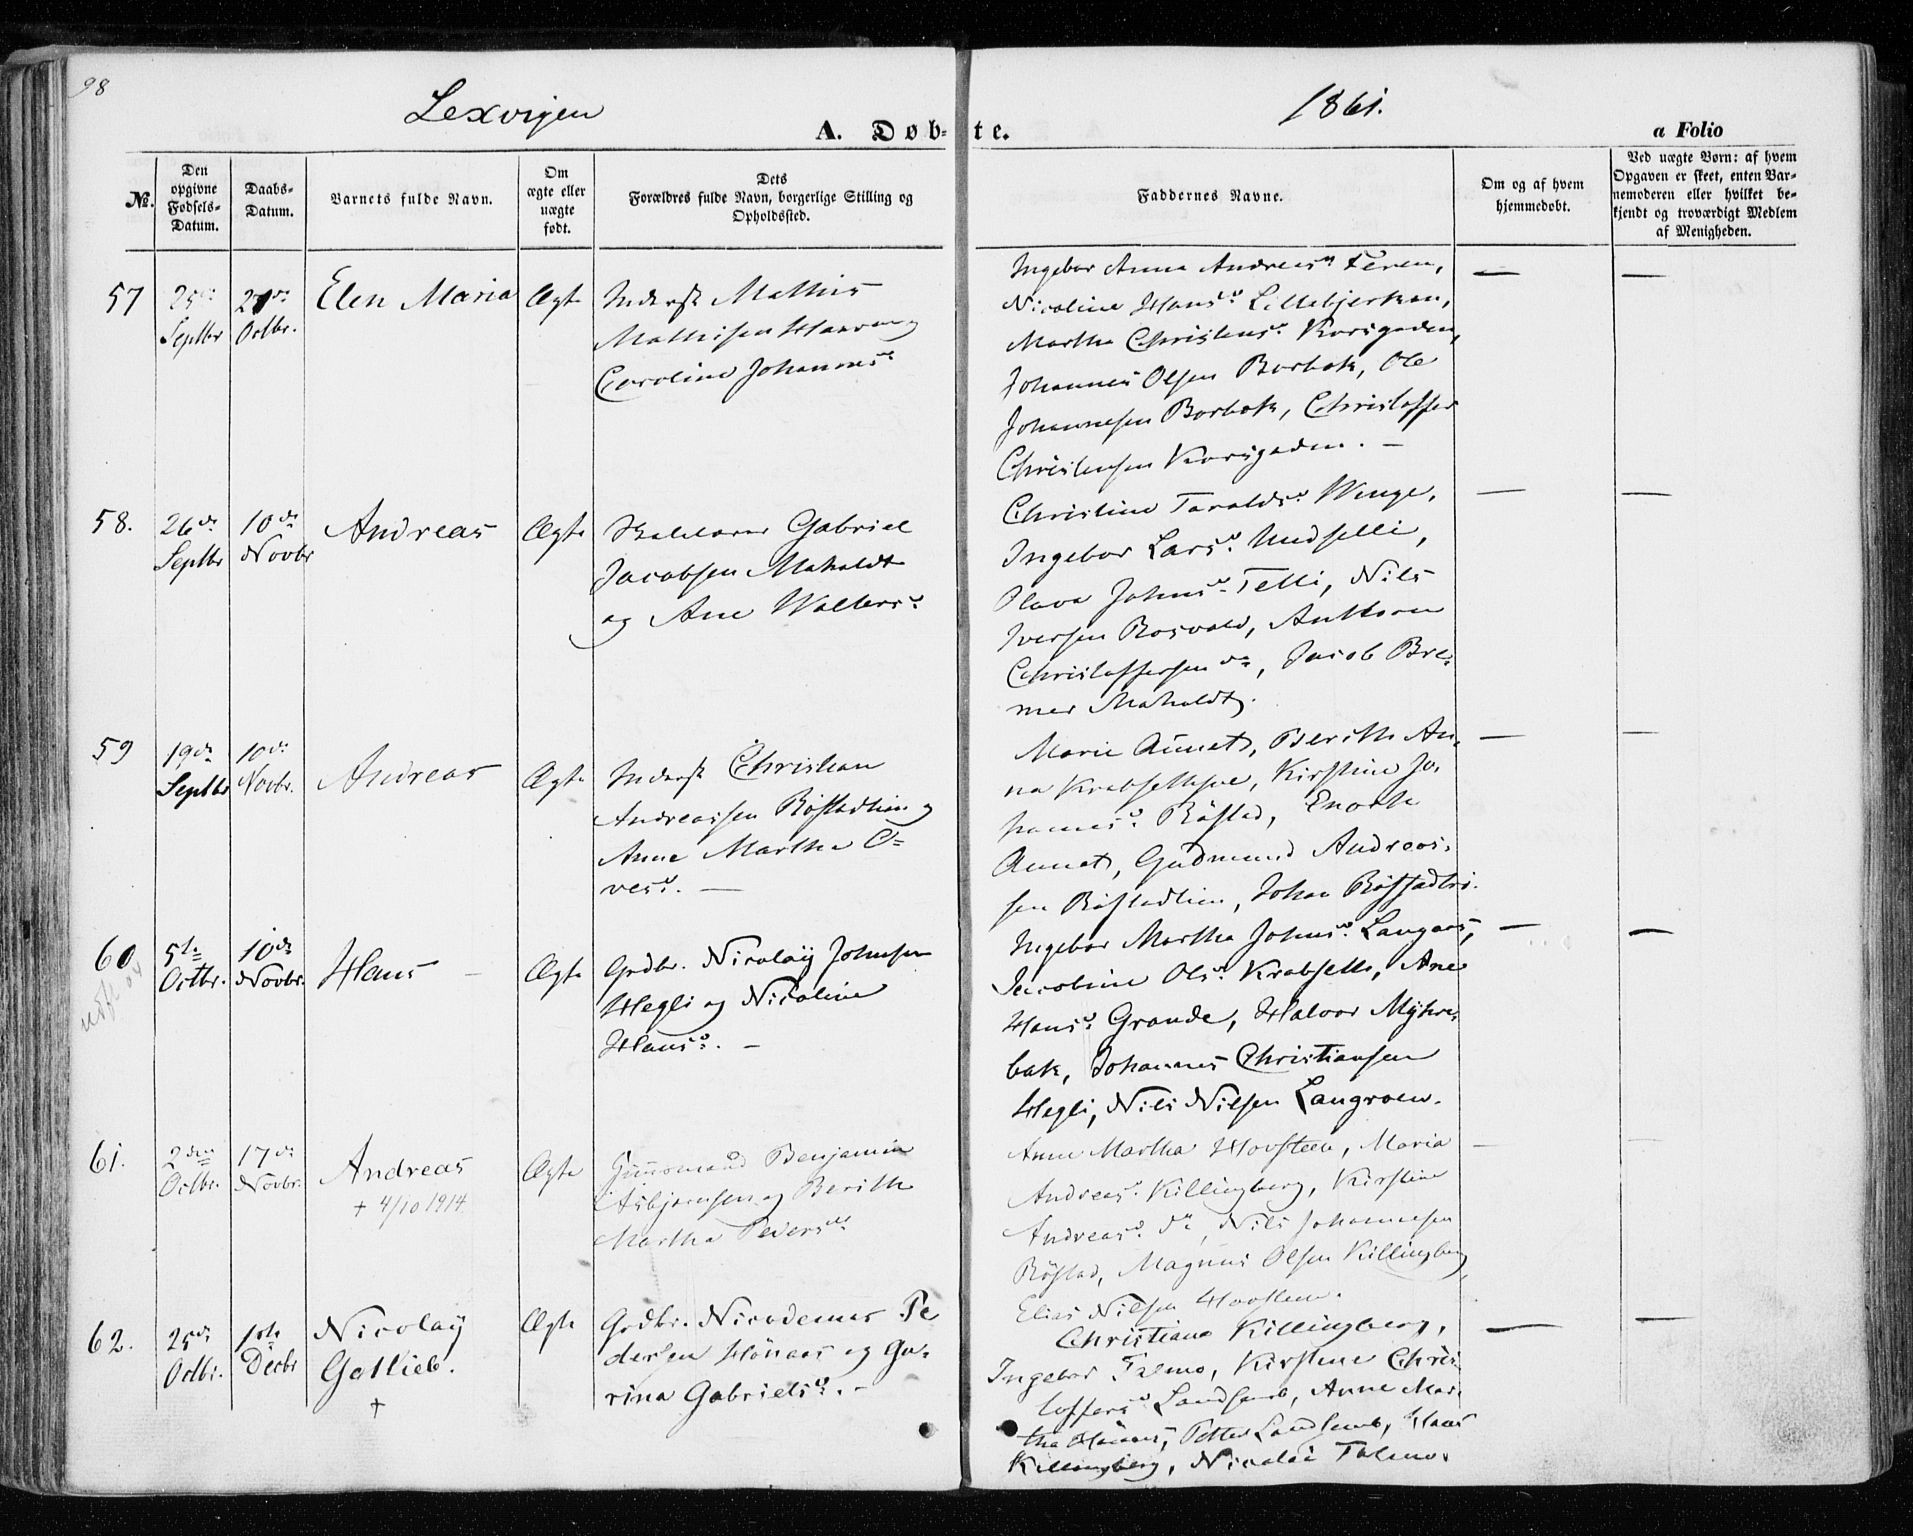 98
Lexvigen
1861.
A. Døb-
te.
a Folio
No.
Den opgivne Fødsels-Datum.
Daabs-Datum.
Barnets fulde Navn.
Om ægte eller uægte født.
Dets Forældres fulde Navn, borgerlige Stilling og Opholdssted.
Faddernes Navne.
Om og af hvem hjemmedøbt.
Ved uægte Børn: af hvem Opgaven er skeet, enten Barnemoderen eller hvilket bekjendt og troværdigt Medlem af Menigheden.
57
25de Septbr
Octbr.
Elen Maria
Ægte
Inderst Mathis
Mathisen og
Caroline Johannesd.
Ingebor Anna Andreasd. Teren,
Nicoline Hansd.
Martha Christensd. Korsgaden,
Johannes Olsen Borbak, Ole
Johannesen Borbak, Christoffer
Christensen Korsgaden. —
—
—
58.
26de Septbr
10de Novbr
Andreas
Ægte
Gabriel
Jacobsen Moholdt
og Ane Woltersd.
Christine Taraldsd. Winge,
Ingebor Larsd.
Olava Johnsd. Telli, Nils
Iversen Rosvold,
Christoffersen do, Jacob Bre-
mer Moholdt.
—
—
59
19de Septbr
10de Novbr.
Andreas
Ægte
Inderst Christian
Andreassen Røstadlien og
Anne Martha O-
vesd. —
Marie Aunet, Berith An-
na Krabseth, Kirstine Jo-
hannesd. Røstad, Enock
Aunet, Gudmund Andreas-
sen Røstadlien, Johan
—
—
60
5te Octbr.
10de Novbr.
Hans —
Ægte
Grdbr. Nicolaÿ Johnsen
Hegli og Nicoline
Hansd. —
Ingebor Martha Johnsd. Langaas,
Jacobine Olsd. Krabseth, Ane
Hansd. Grande, Halvor Mÿhre-
bak, Johannes Christiansen
Hegli, Nils Nilsen Langroen.
—
—
61.
2den Octbr.
17de Novbr.
Andreas
† 4/10 1914
Ægte
Benjamin
Asbjørnsen og Berith
Martha Pedersd.
Anne Martha Hovsteen, Maria
Andreasd. Killingberg, Kirstine
Andreasd. do, Nils Johannesen
Røstad, Magnus Olsen Killingberg,
Elias Nilsen Hovsteen.
—
—
62.
25de Octbr.
1ste Decbr
Nicolaÿ
Gotlieb.
†
Ægte
Grdbr. Nicodemus Pe
dersen Hønaas og Gu-
rina Gabrielsd. —
Christiane Killingberg,
Ingebor Talmo, Kirstine Chris-
toffersd. Landsem, Anne Mar-
tha Hønaas, Petter Landsem, Hans
Killingberg, Nicolai Talmo.
—
—